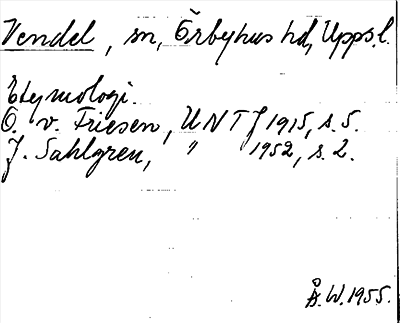 Vendel, sn, Örbyhus hd, Upps.l.
Etymologi.
O. v. Friesen, UNTJ 1915, s. 5.
J. Sahlgren, " 1952, s. 2.
Å.W. 1955.